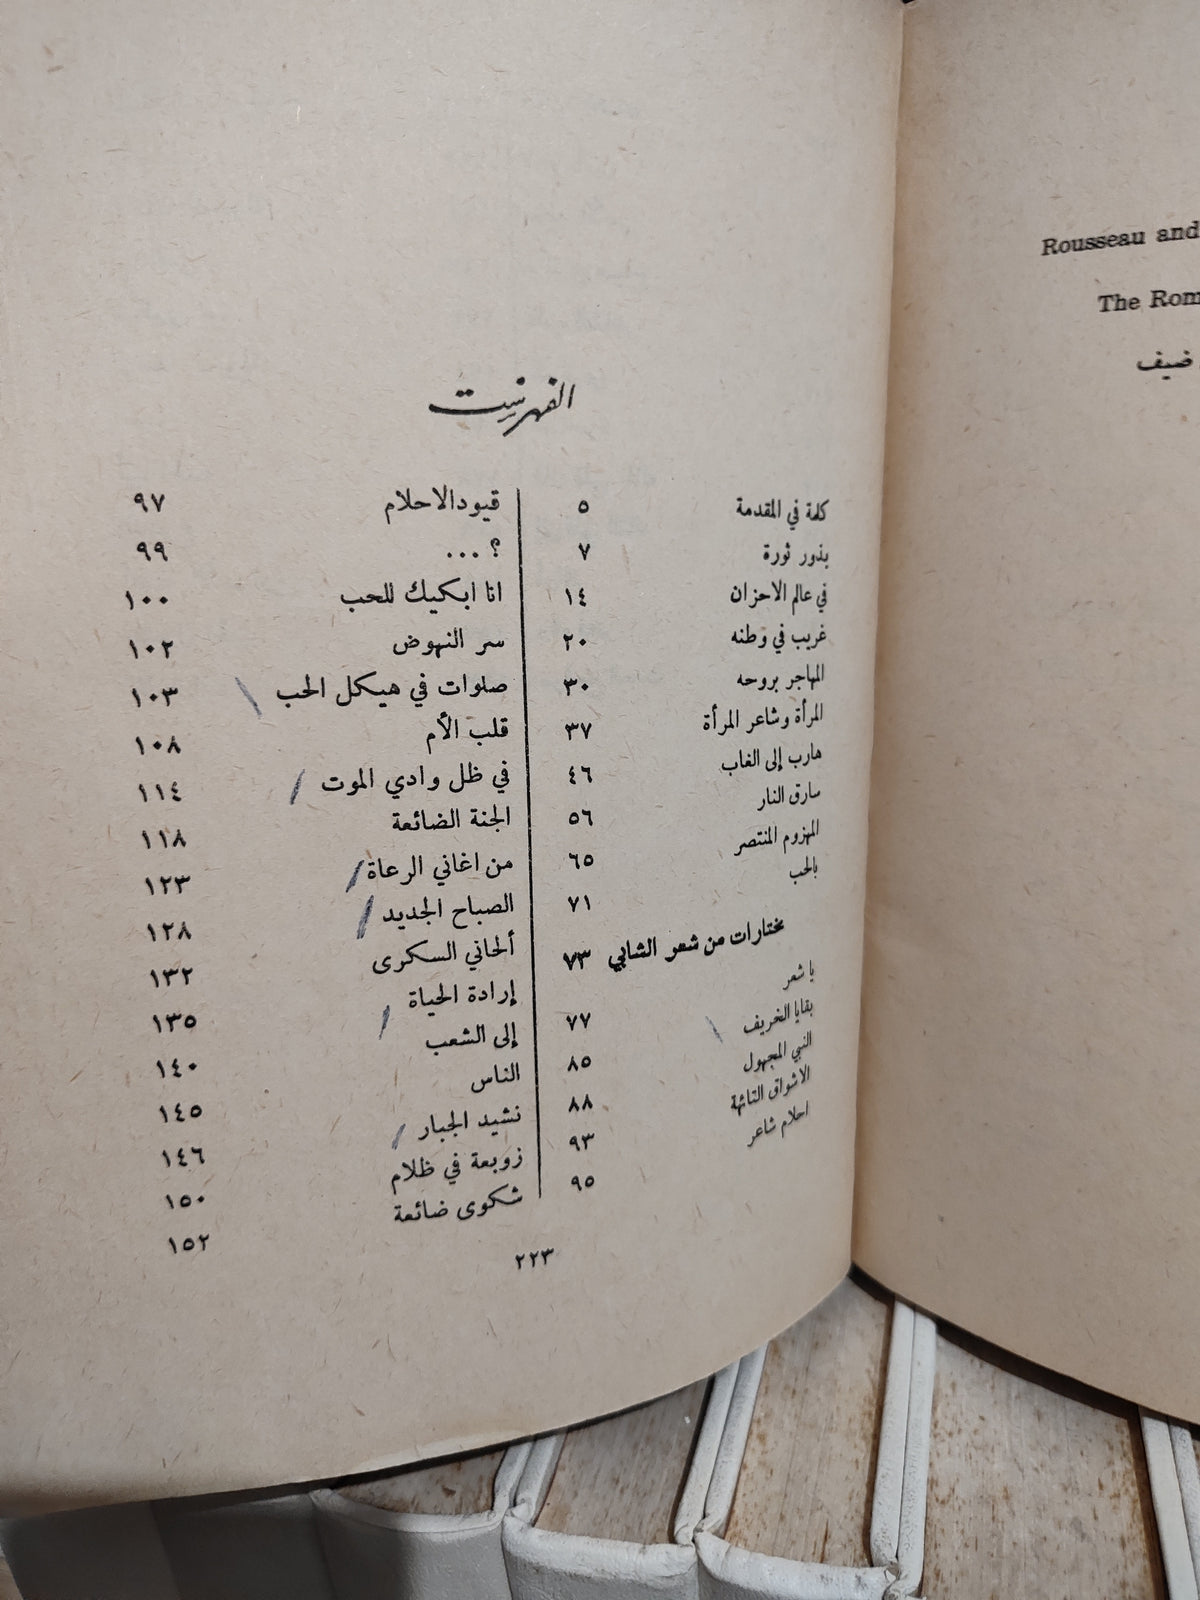 الفهرست
كلمة في المقدمة ٥
بذور ثورة ٧
في عالم الاحزان ١٤
غريب في وطنه ٢٠
المهاجر بروحه ٣٠
المرأة وشاعر المرأة ٣٧
هارب إلى الغاب ٤٦
سارق النار ٥٦
المهزوم المنتصر ٦٥
بالحب ٧١
مختارات من شعر الشابي ٧٣
يا شعر ٧٧
بقايا الخريف ٨٥
النبي المجهول ٨٨
الاشواق التائهة ٩٣
احلام شاعر ٩٥
قيودالاحلام ٩٧
؟ ... ٩٩
انا ابكيك للحب ١٠٠
سر النهوض ١٠٢
صلوات في هيكل الحب ١٠٣
قلب الأم ١٠٨
في ظل وادي الموت ١١٤
الجنة الضائعة ١١٨
من اغاني الرعاة ١٢٣
الصباح الجديد ١٢٨
ألحاني السكرى ١٣٢
إرادة الحياة ١٣٥
إلى الشعب ١٤٠
الناس ١٤٥
نشيد الجبار ١٤٦
زوبعة في ظلام ١٥٠
شكوى ضائعة ١٥٢
٢٢٣
Rousseau and
The Rom
ضيف